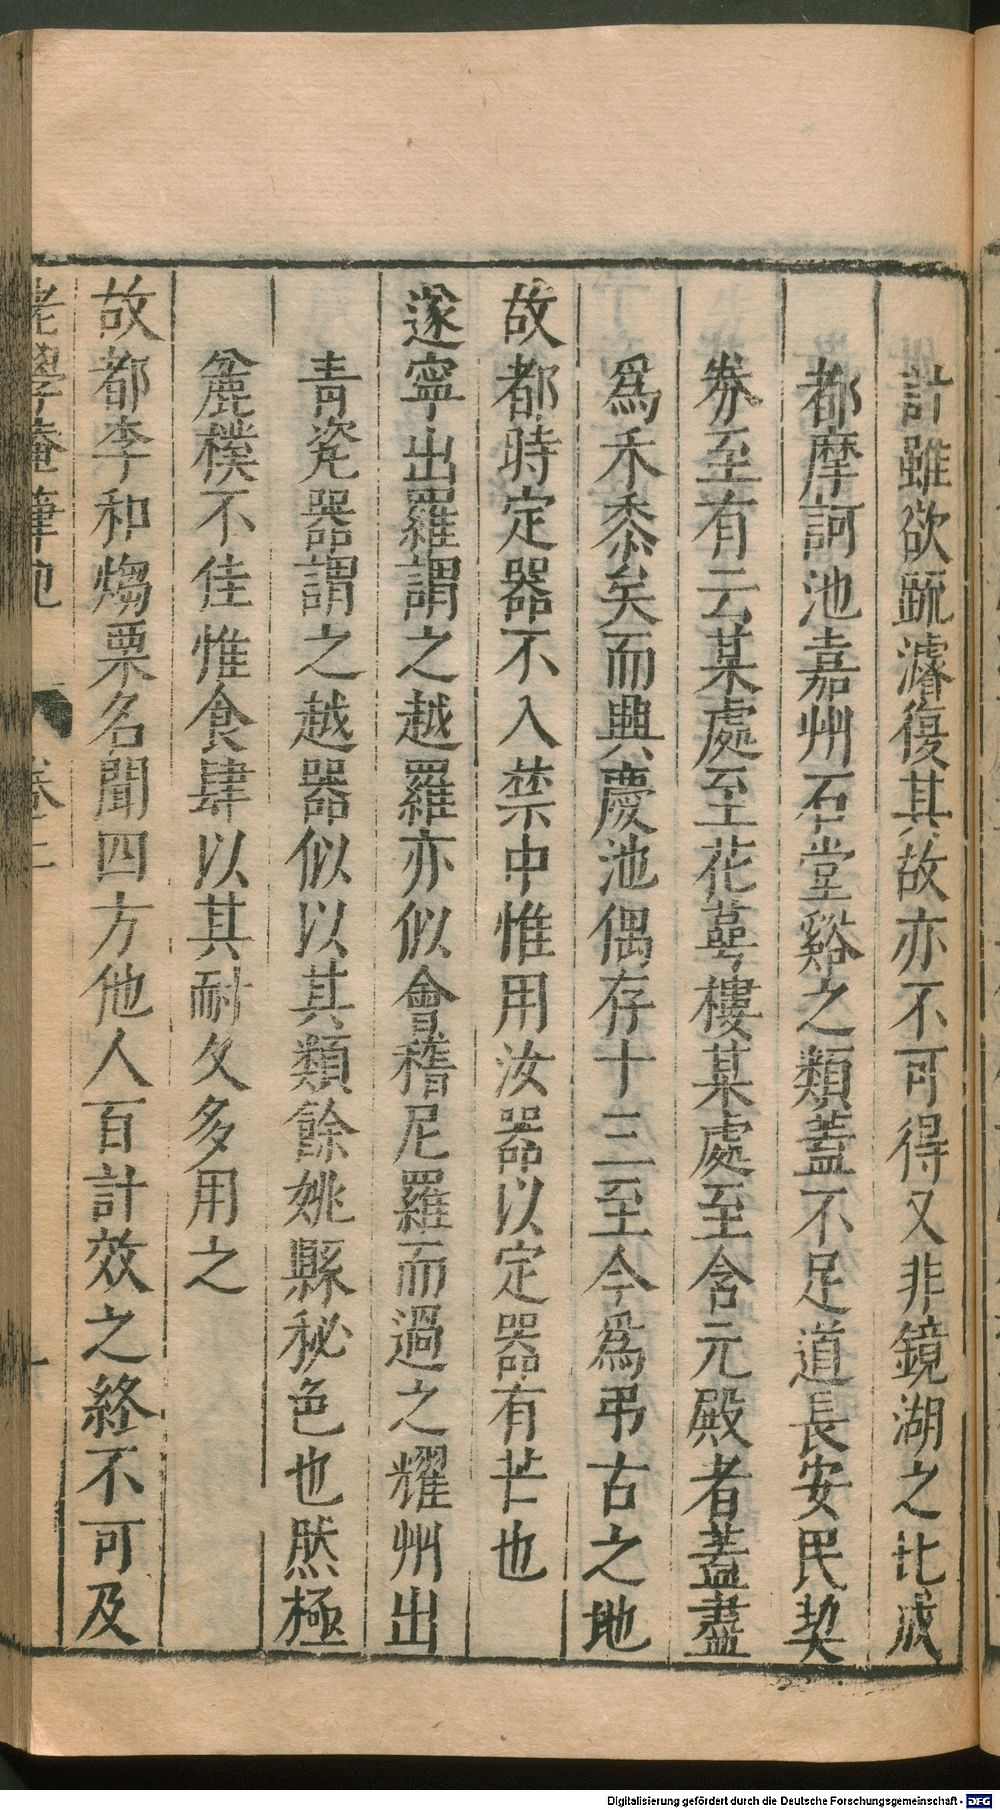 計雖欲疏濬復其故亦不可得又非鏡湖之比成
都摩訶池嘉州石堂谿之類蓋不足道長安民契
券至有云某處至花萼樓某處至含元殿者蓋盡
爲禾黍矣而興慶池偶存十三至今爲弔古之地
故都時定器不入禁中惟用汝器以定器有芒也
遂寧出羅謂之越羅亦似會稽尼羅而過之耀州出
青瓷器謂之越器似以其類餘姚縣秘色也然極
麄樸不佳惟食肆以其耐久多用之
故都李和煼栗名聞四方他人百計效之終不可及
老學庵筆記 卷二
Digitalisierung gefördert durch die Deutsche Forschungsgemeinschaft - DFG